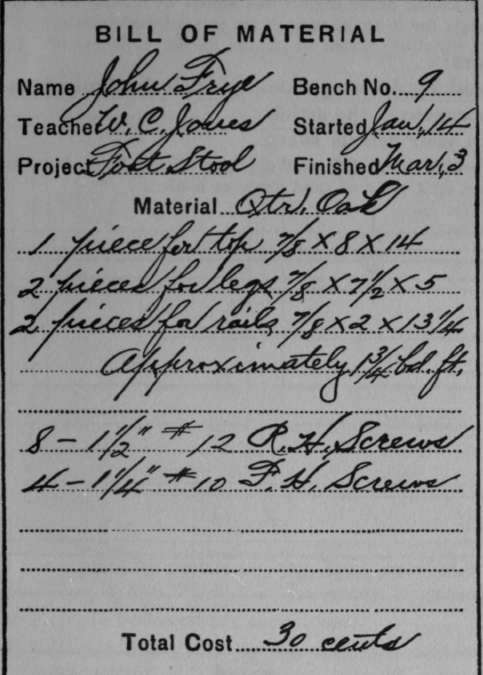 BILL OF MATERIAL
Name John Frye Bench No. 9
Teacher W. C. Jones Started Jan. 14
Project Foot Stool Finished Mar. 3
Material Qtr. Oak
1 piece for top 7/8 X 8 X 14
2 pieces for legs 7/8 X 7 1/2 X 5
2 pieces for rails 7/8 X 2 X 13 1/4
Approximately 1 3/4 bd. ft.
8 - 1 1/2" # 12 R. H. Screws
4 - 1 1/4" # 10 F. H. Screws
Total Cost 30 cents